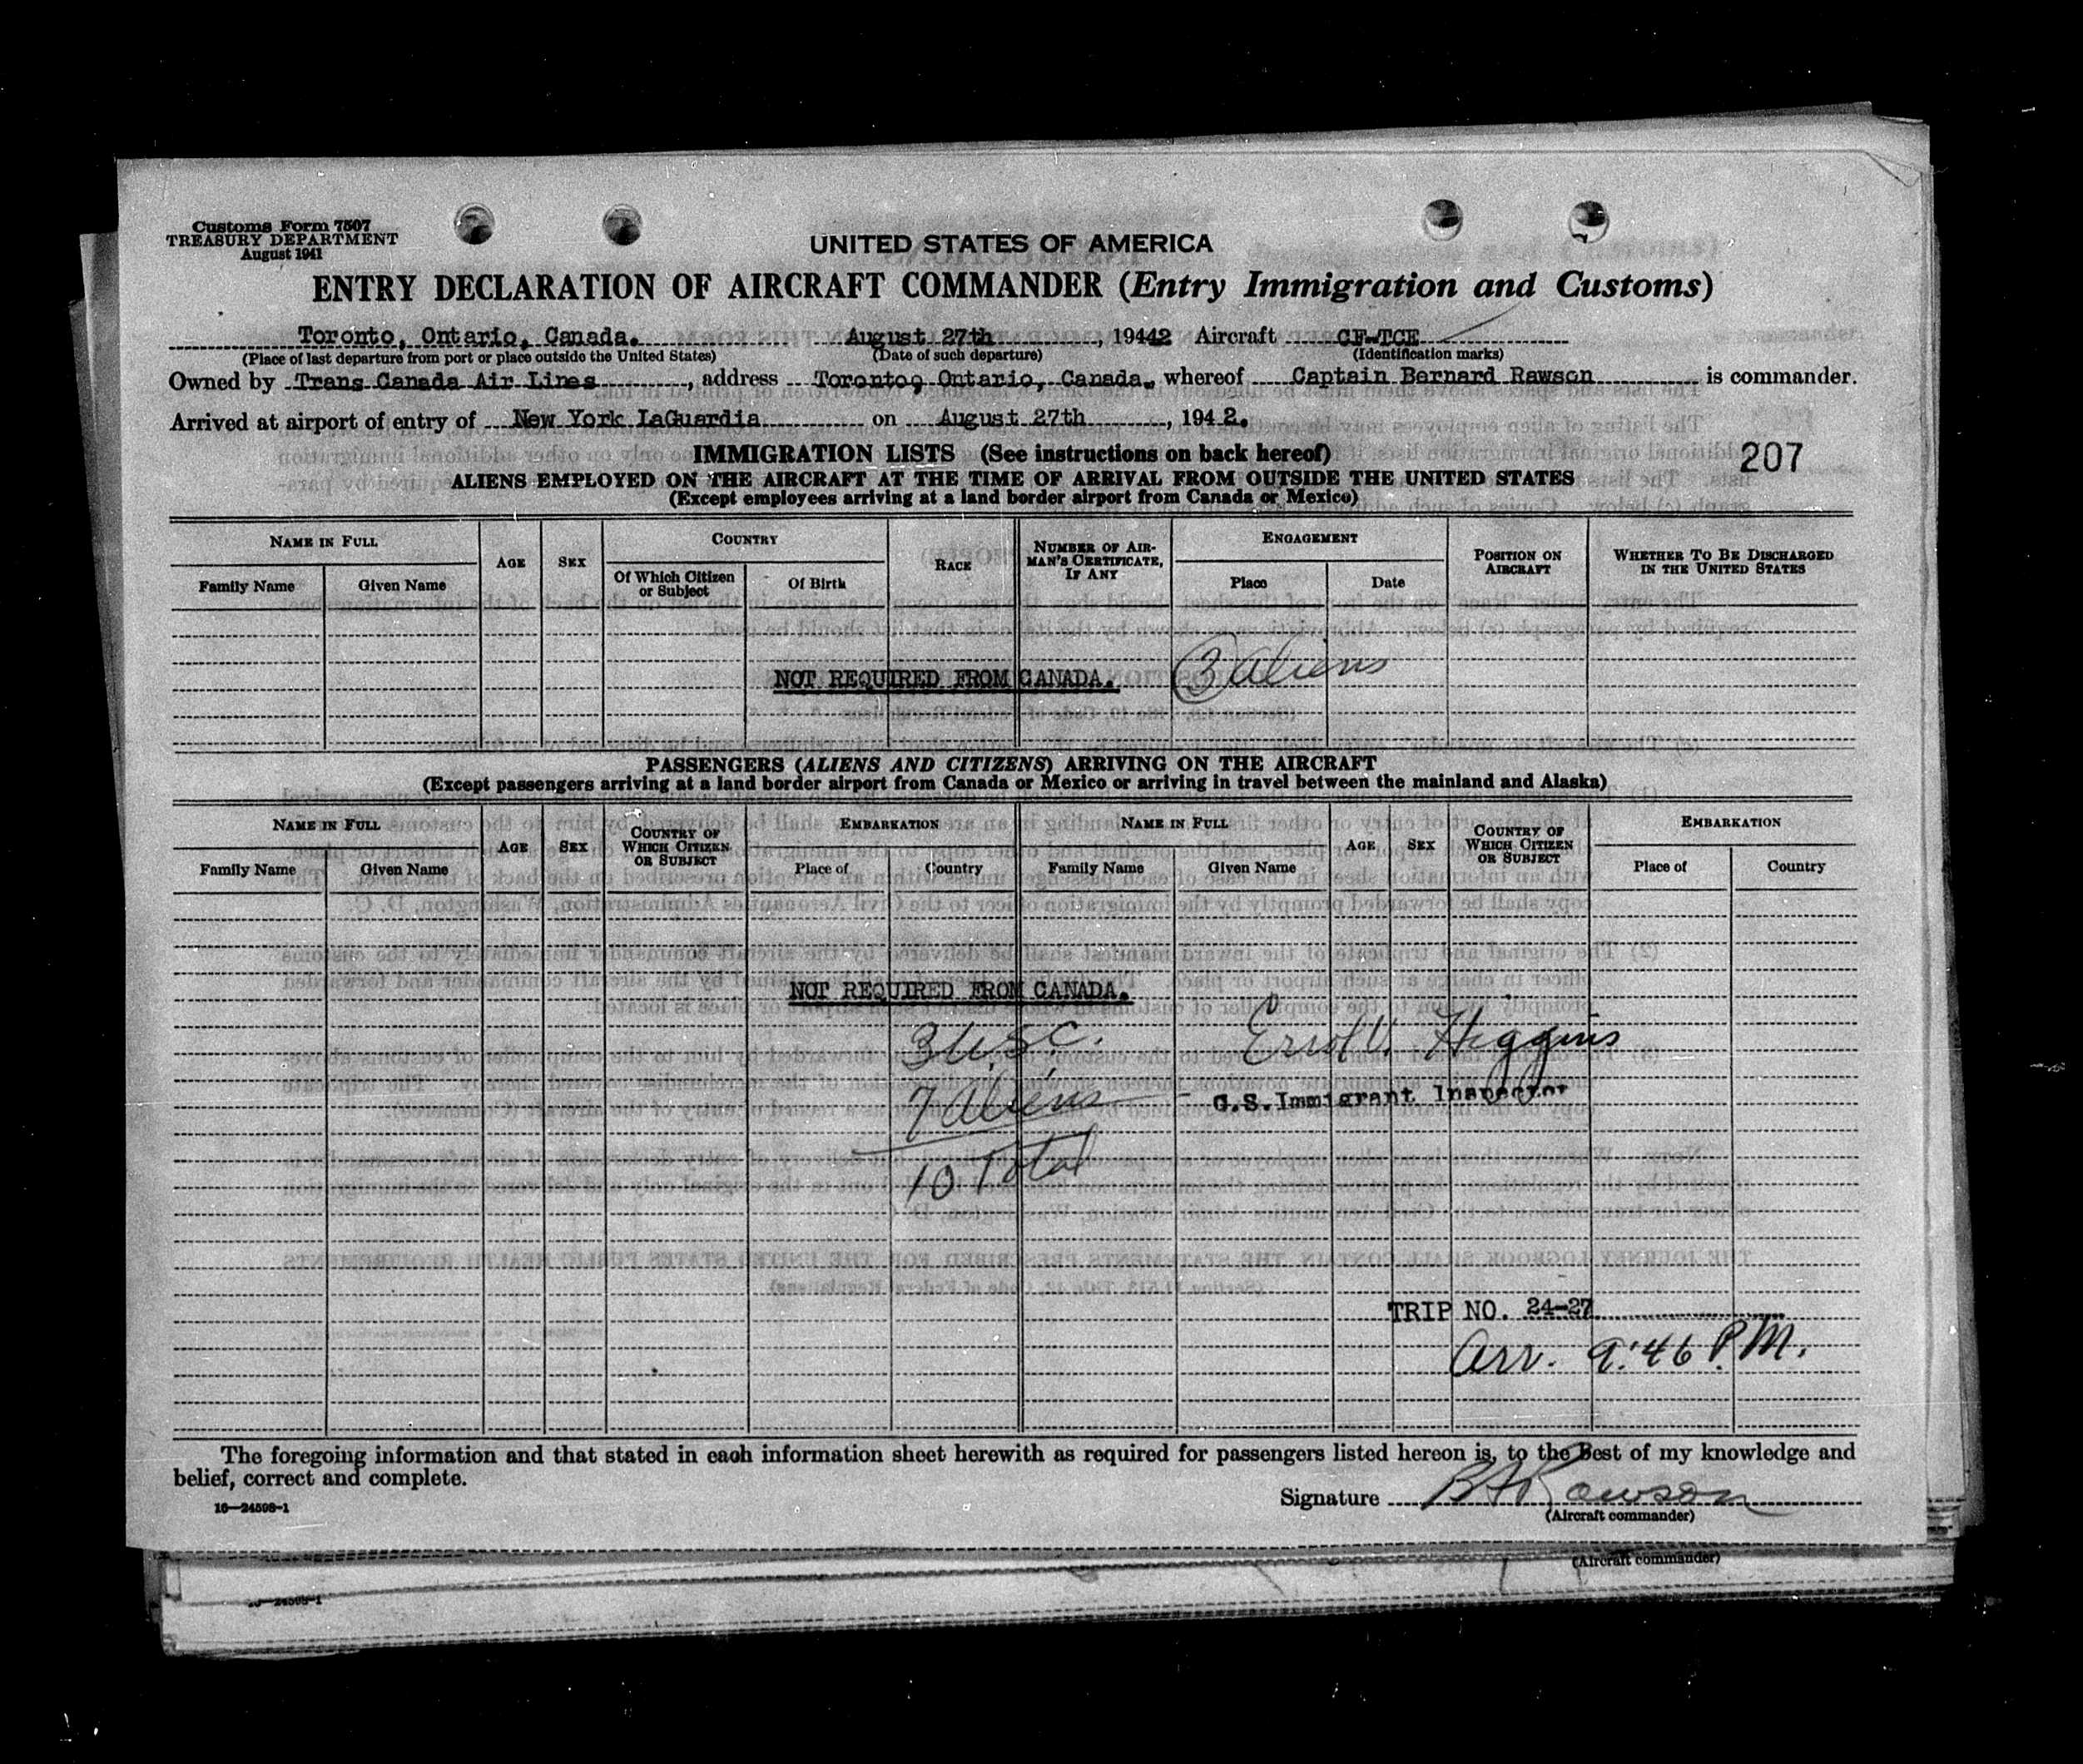 Customs Form 7507
TREASURY DEPARTMENT
August 1941
UNITED STATES OF AMERICA
ENTRY DECLARATION OF AIRCRAFT COMMANDER (Entry Immigration and Customs)
Toronto, Ontario, Canada. August 27th, 19442 Aircraft CF-TCE
(Place of last departure from port or place outside the United States) (Date of such departure) (Identification marks)
Owned by Trans Canada Air Lines, address Toronto, Ontario, Canada. whereof Captain Bernard Rawson is commander.
Arrived at airport of entry of New York LaGuardia on August 27th, 1942.
IMMIGRATION LISTS (See instructions on back hereof) 207
ALIENS EMPLOYED ON THE AIRCRAFT AT THE TIME OF ARRIVAL FROM OUTSIDE THE UNITED STATES
(Except employees arriving at a land border airport from Canada or Mexico)
NAME IN FULL AGE SEX COUNTRY RACE NUMBER OF AIRMAN'S CERTIFICATE, IF ANY ENGAGEMENT POSITION ON AIRCRAFT WHETHER TO BE DISCHARGED IN THE UNITED STATES
Family Name Given Name Of Which Citizen or Subject Of Birth Place Date
NOT REQUIRED FROM CANADA. 3 aliens
PASSENGERS (ALIENS AND CITIZENS) ARRIVING ON THE AIRCRAFT
(Except passengers arriving at a land border airport from Canada or Mexico or arriving in travel between the mainland and Alaska)
NAME IN FULL AGE SEX COUNTRY OF WHICH CITIZEN OR SUBJECT EMBARKATION NAME IN FULL AGE SEX COUNTRY OF WHICH CITIZEN OR SUBJECT EMBARKATION
Family Name Given Name Place of Country Family Name Given Name Place of Country
NOT REQUIRED FROM CANADA.
3 U.S.C. Errol V. Higgins
7 aliens U.S. Immigrant Inspector
10 Total
TRIP NO. 24-27
Arr. 9:46 P.M.
The foregoing information and that stated in each information sheet herewith as required for passengers listed hereon is, to the Best of my knowledge and
belief, correct and complete.
16—24598-1
Signature B A Rawson
(Aircraft commander)
(Aircraft commander)
16—24598-1